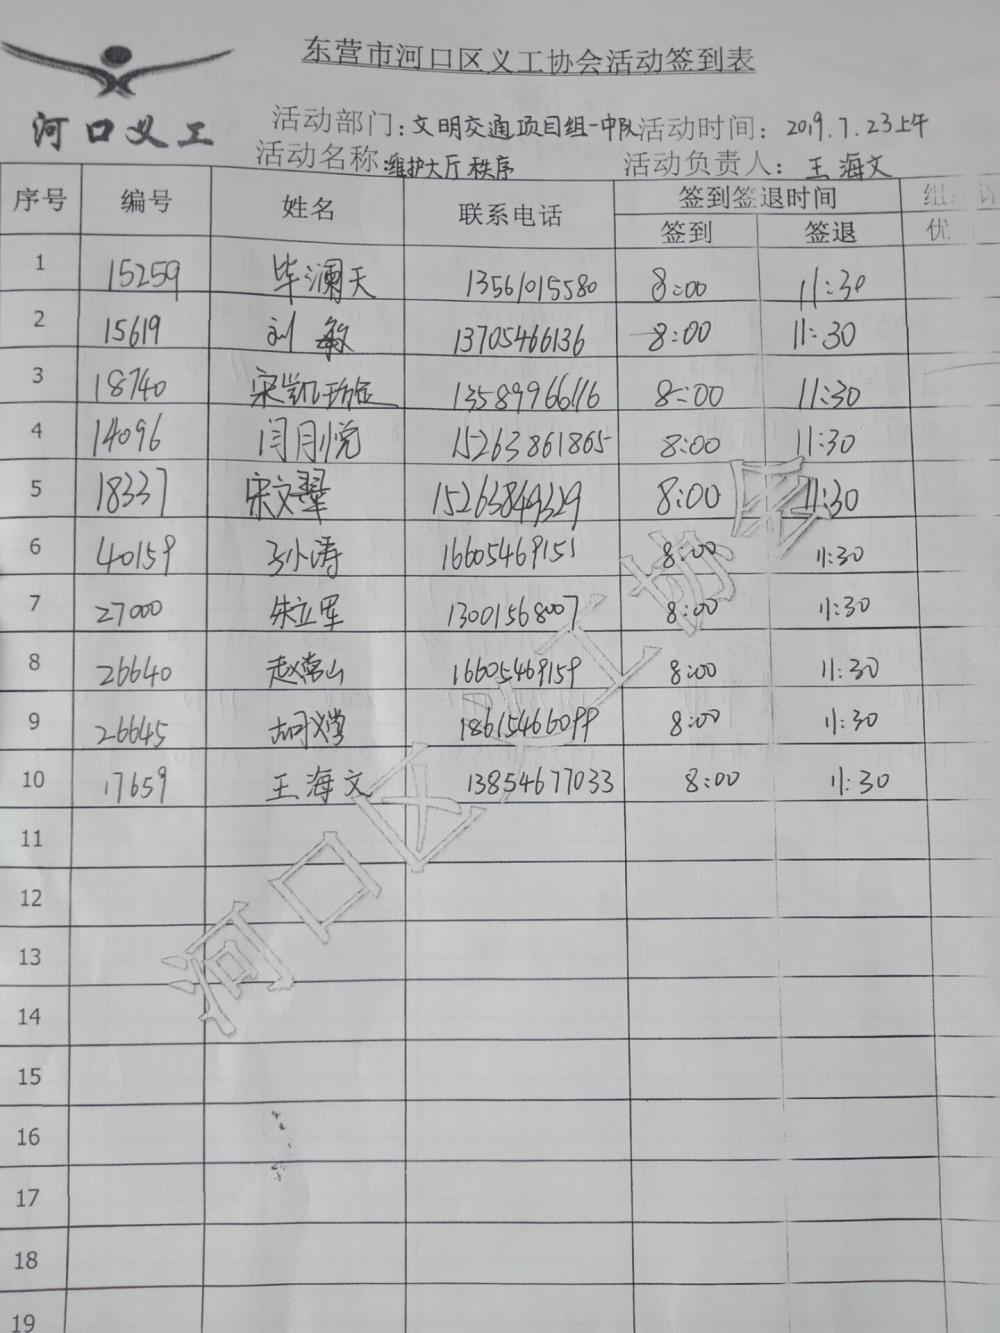 东营市河口区义工协会活动签到表
河口义工
活动部门：文明交通项目组一中队 活动时间：2019.7.23上午
活动名称：维护大厅秩序 活动负责人：王海文
序号 编号 姓名 联系电话 签到签退时间 组 评
签到 签退 优
1 15259 毕澜天 13561015580 8:00 11:30
2 15619 刘敏 13705466136 8:00 11:30
3 18740 宋凯 13589966116 8:00 11:30
4 14096 闫月悦 15263861865 8:00 11:30
5 18337 宋文翠 15263849329 8:00 11:30
6 40159 孙小涛 16605469151 8:00 11:30
7 27000 朱立军 13001568007 8:00 11:30
8 26640 赵常山 16605469159 8:00 11:30
9 26645 18615466099 8:00 11:30
10 17659 王海文 13854677033 8:00 11:30
11
12
13
14
15
16
17
18
19
河口区义工协会